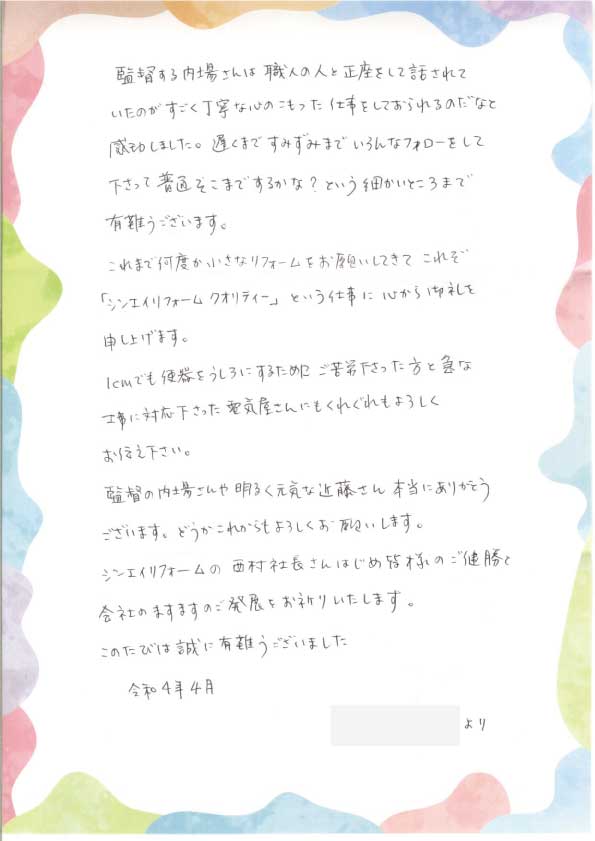 監督する内場さんは職人の人と正座をして話されて
いたのがすごく丁寧な心のこもった仕事をしておられるのだなと
感動しました。遅くまですみずみまでいろんなフォローをして
下さって普通そこまでするかな？という細かいところまで
有難うございます。
これまで何度か小さなリフォームをお願いしてきてこれぞ
「シンエイリフォームクオリティー」という仕事に心から御礼を
申し上げます。
1cmでも便器をうしろにするためにご苦労下さった方と急な
工事に対応下さった電気屋さんにもくれぐれもよろしく
お伝え下さい。
監督の内場さんや明るく元気な近藤さん本当にありがとう
ございます。どうかこれからもよろしくお願いします。
シンエイリフォームの西村社長さんはじめ皆様のご健勝と
会社のますますのご発展をお祈りいたします。
このたびは誠に有難うございました
令和4年4月
より